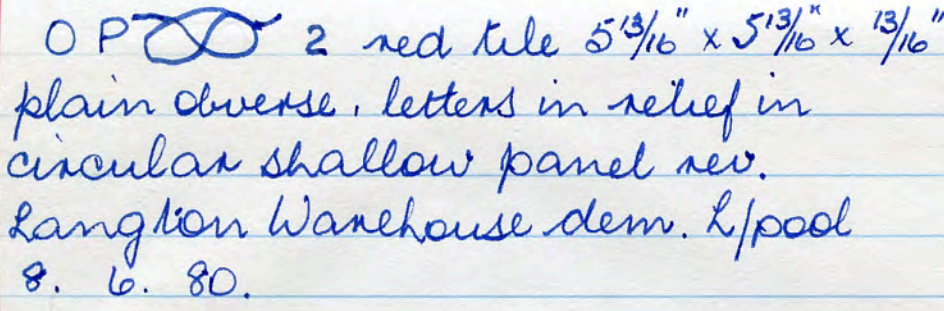 O P 2 red tile 5 13/16" x 5 13/16" x 13/16"
plain obverse, letters in relief in
circular shallow panel rev.
Langton Warehouse dem. L/pool
8. 6. 80.